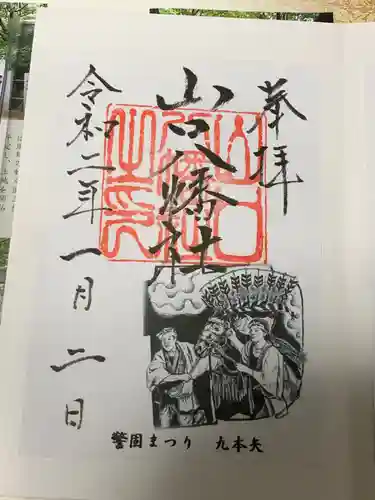 奉拝
山口八幡社
令和二年一月二日
警固まつり 九本矢